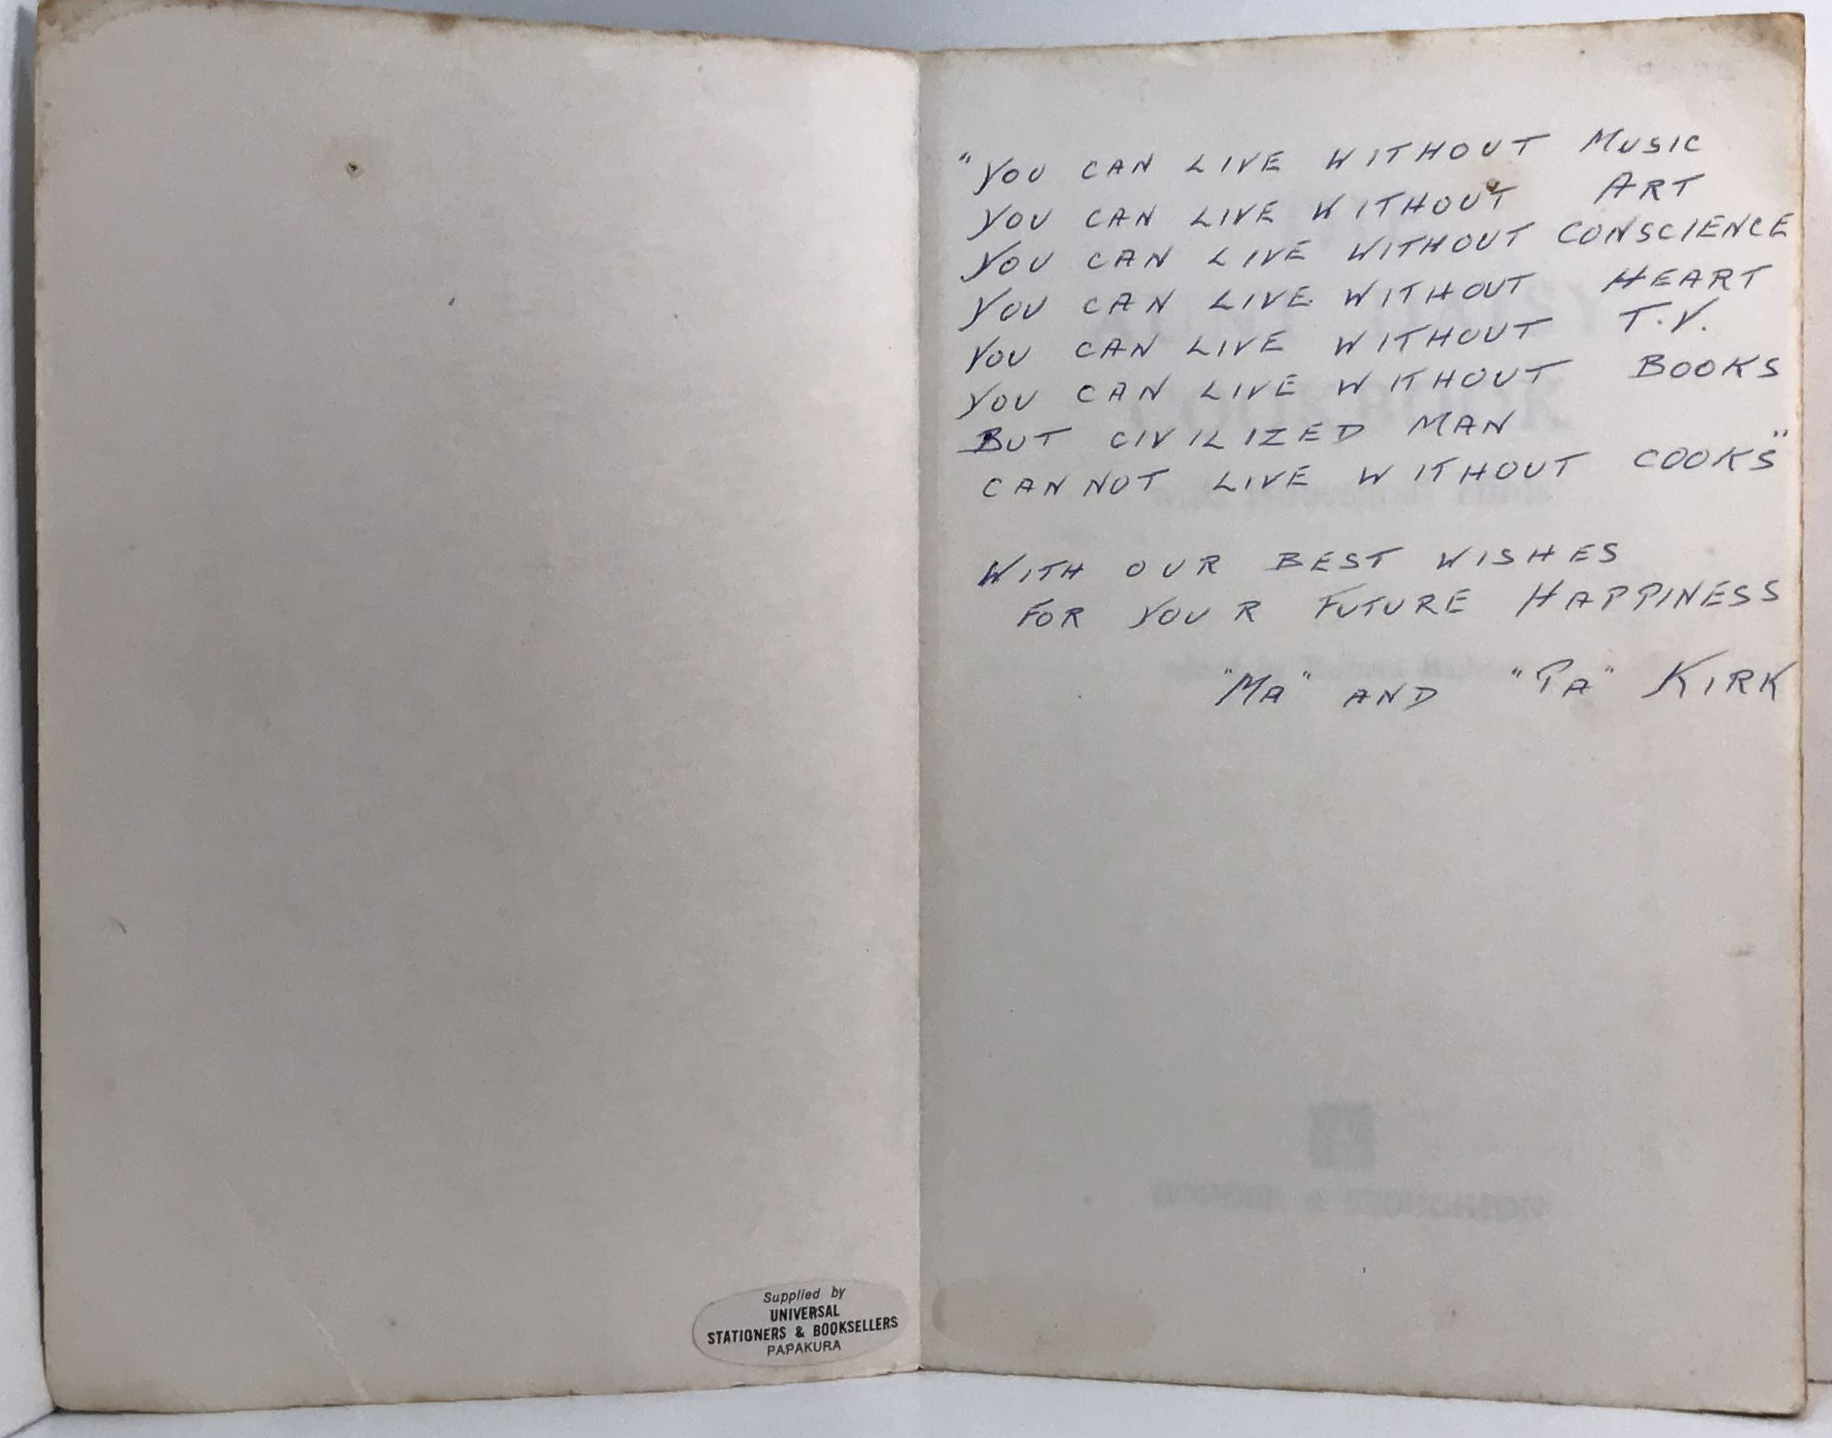 Supplied by
UNIVERSAL
STATIONERS & BOOKSELLERS
PAPAKURA
"YOU CAN LIVE WITHOUT MUSIC
YOU CAN LIVE WITHOUT ART
YOU CAN LIVE WITHOUT CONSCIENCE
YOU CAN LIVE WITHOUT HEART
YOU CAN LIVE WITHOUT T.V.
YOU CAN LIVE WITHOUT BOOKS
BUT CIVILIZED MAN
CANNOT LIVE WITHOUT COOKS"
WITH OUR BEST WISHES
FOR YOUR FUTURE HAPPINESS
"MA" AND "PA" KIRK